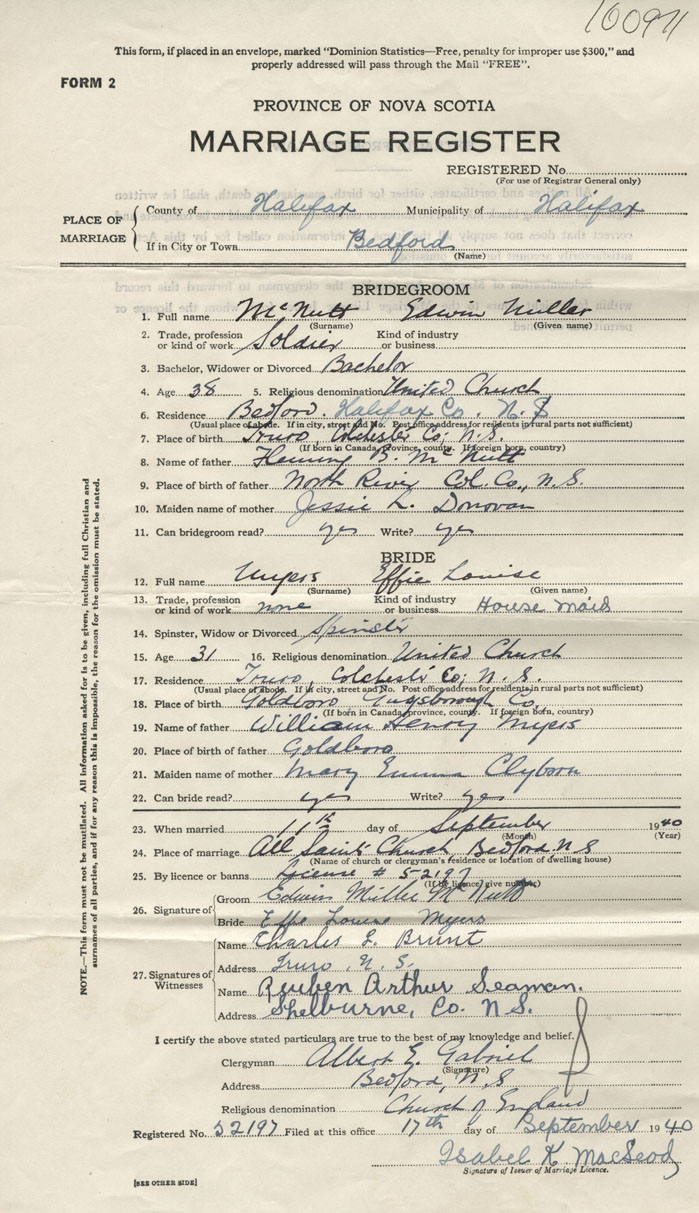 100971
This form, if placed in an envelope, marked "Dominion Statistics—Free, penalty for improper use $300," and
properly addressed will pass through the Mail "FREE".
FORM 2
PROVINCE OF NOVA SCOTIA
MARRIAGE REGISTER
REGISTERED No.
(For use of Registrar General only)
PLACE OF MARRIAGE
County of Halifax Municipality of Halifax
If in City or Town Bedford
(Name)
BRIDEGROOM
1. Full name McNutt Edwin Miller
(Surname) (Given name)
2. Trade, profession or kind of work Soldier Kind of industry or business
3. Bachelor, Widower or Divorced Bachelor
4. Age 38 5. Religious denomination United Church
6. Residence Bedford. Halifax Co. N.S
(Usual place of abode. If in city, street and No. Post office address for residents in rural parts not sufficient)
7. Place of birth Truro, Colchester Co; N.S.
(If born in Canada, province, county. If foreign born, country)
8. Name of father Fleming B. McNutt
9. Place of birth of father North River Col. Co., N.S.
10. Maiden name of mother Jessie L. Donovan
11. Can bridegroom read? yes Write? yes
BRIDE
12. Full name Myers Effie Louise
(Surname) (Given name)
13. Trade, profession or kind of work none Kind of industry or business House maid
14. Spinster, Widow or Divorced Spinster
15. Age 31 16. Religious denomination United Church
17. Residence Truro, Colchester Co; N.S.
(Usual place of abode. If in city, street and No. Post office address for residents in rural parts not sufficient)
18. Place of birth Goldboro Guysborough Co.
(If born in Canada, province, county. If foreign born, country)
19. Name of father William Henry Myers
20. Place of birth of father Goldboro
21. Maiden name of mother Mary Emma Clyborn
22. Can bride read? yes Write? yes
23. When married 11th day of September 1940
(Month) (Year)
24. Place of marriage All Saints Church Bedford N S
(Name of church or clergyman's residence or location of dwelling house)
25. By licence or banns License # 52197
(If by licence, give number)
26. Signature of
Groom Edwin Miller McNutt
Bride Effie Louise Myers
27. Signatures of Witnesses
Name Charles L. Brunt
Address Truro, N.S.
Name Reuben Arthur Seaman.
Address Shelburne, Co. N.S.
I certify the above stated particulars are true to the best of my knowledge and belief.
Clergyman Albert E. Gabriel
(Signature)
Address Bedford, N.S
Religious denomination Church of England
Registered No. 52197 Filed at this office 17th day of September 1940
Isabel K MacLeod
Signature of Issuer of Marriage Licence.
[SEE OTHER SIDE]
NOTE.—This form must not be mutilated. All information asked for is to be given, including full Christian and
surnames of all parties, and if for any reason this is impossible, the reason for the omission must be stated.